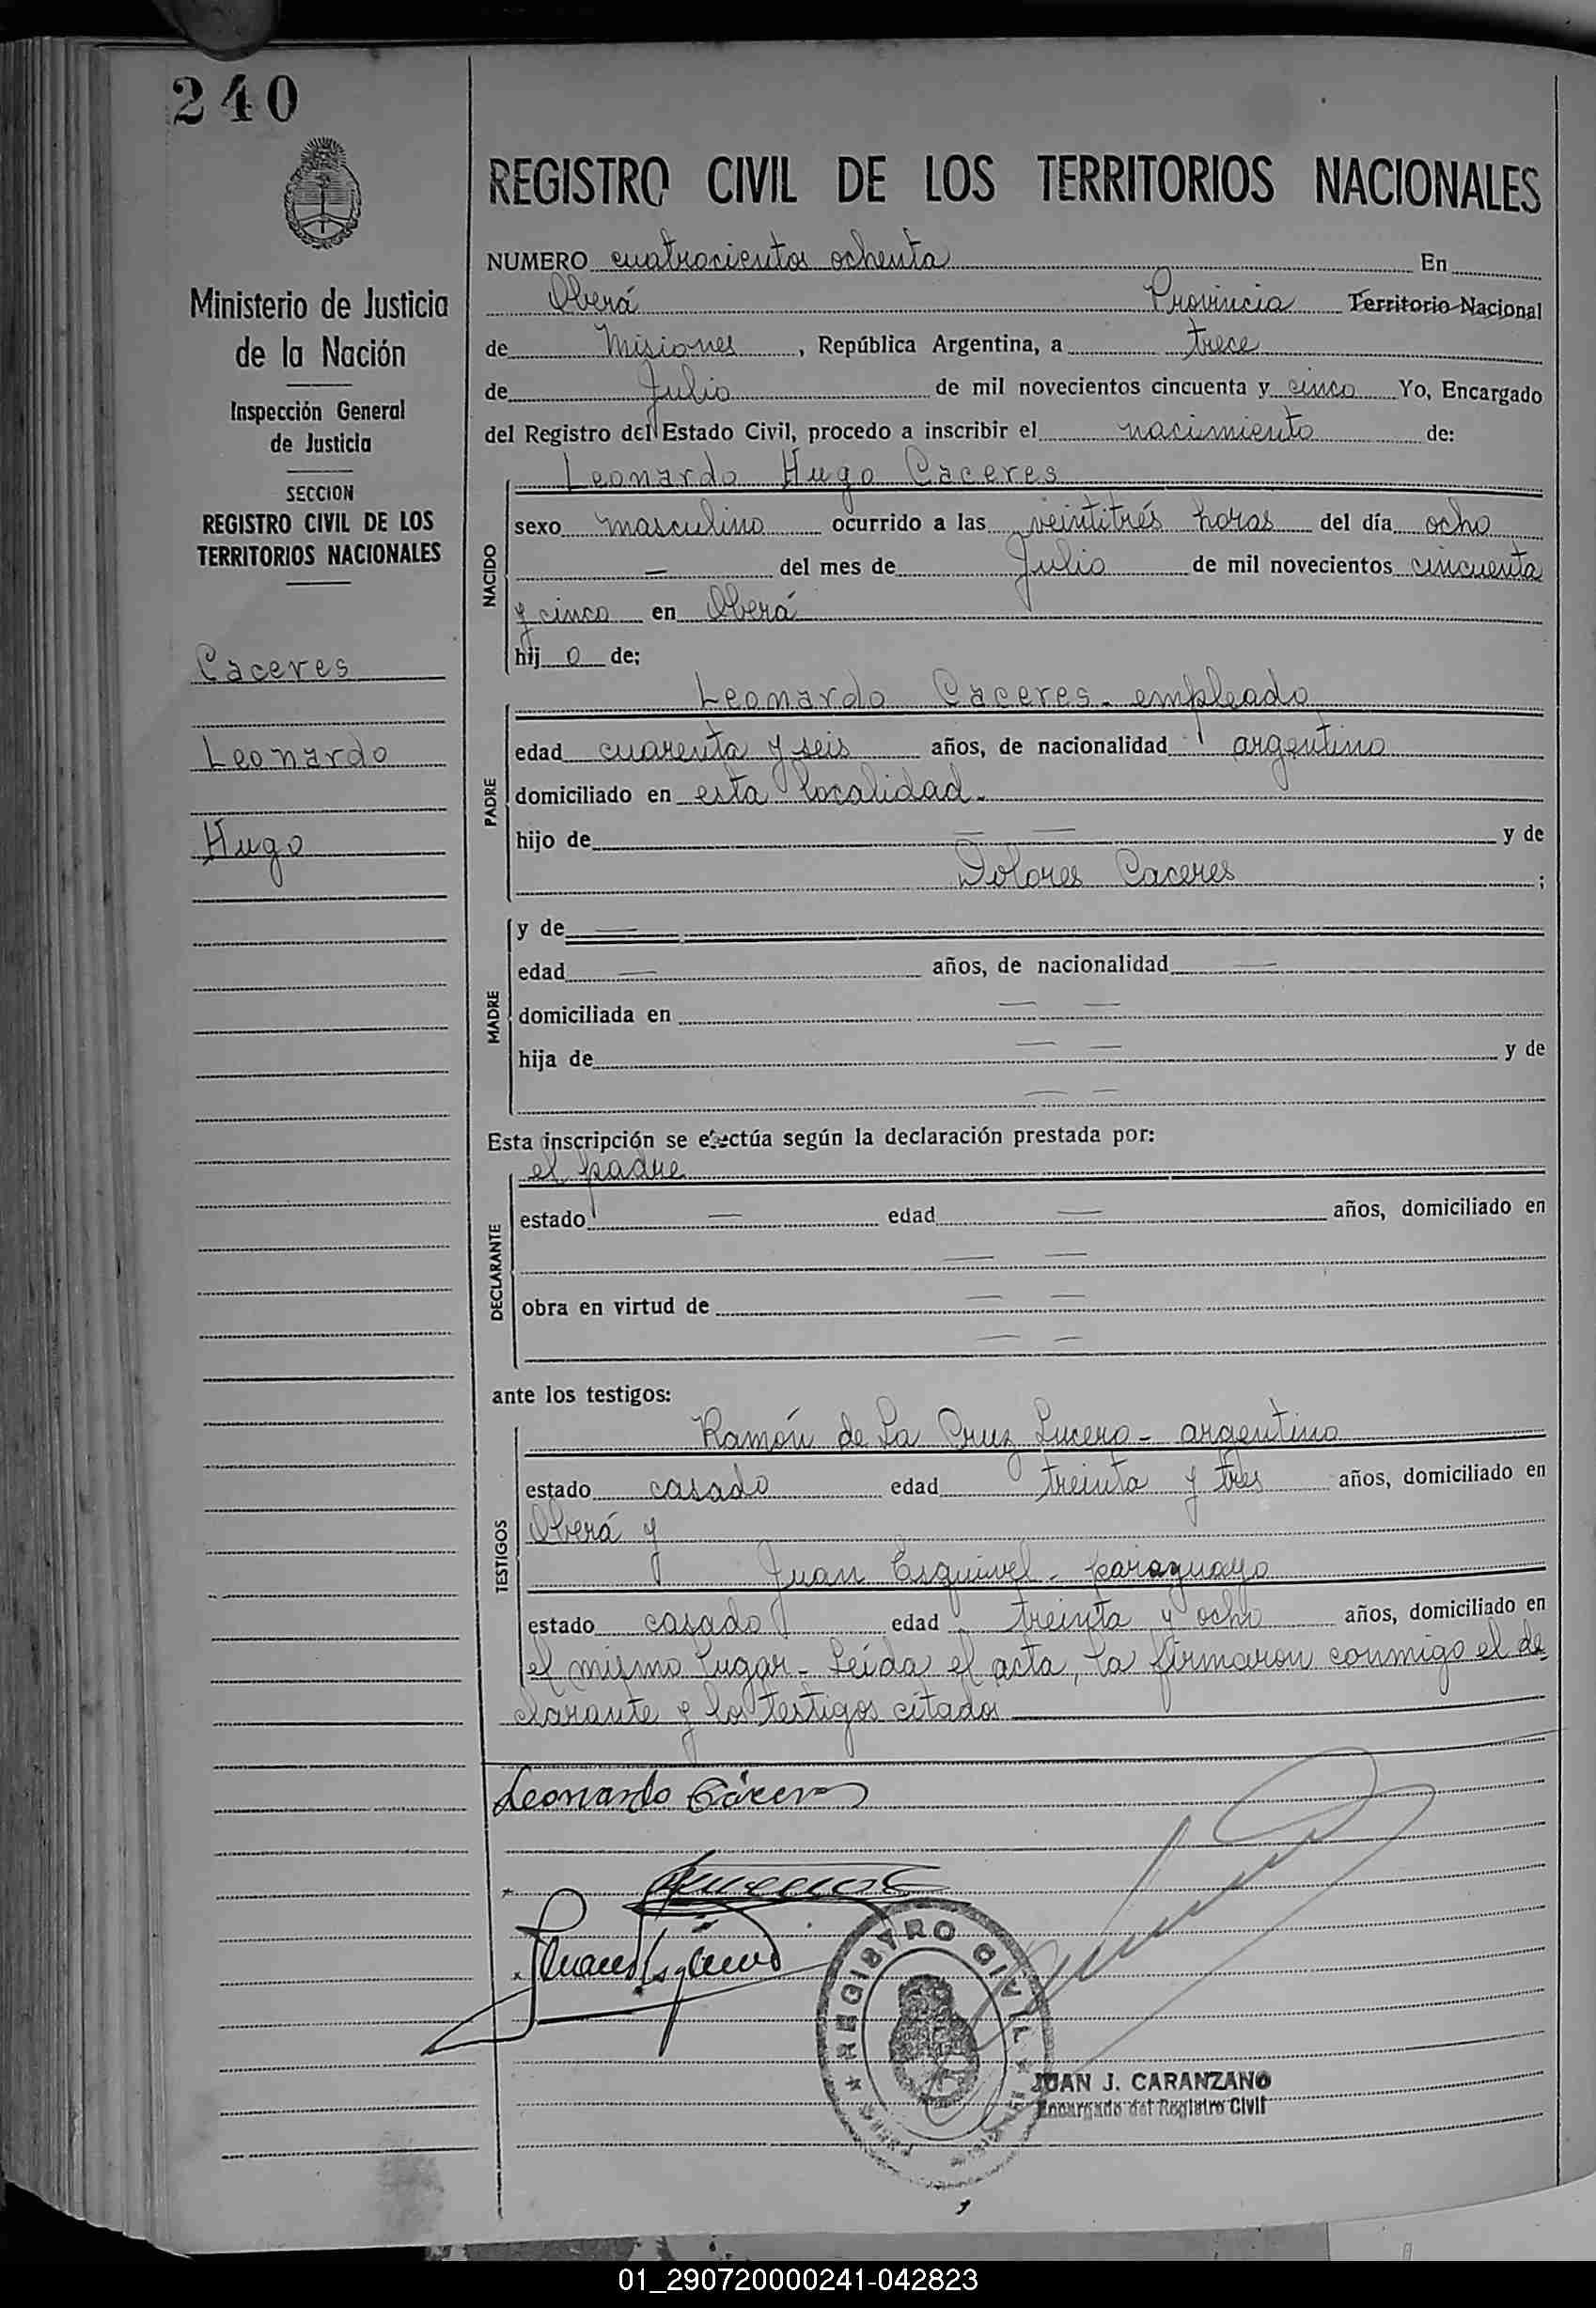 240
Ministerio de Justicia
de la Nación
Inspección General
de Justicia
SECCION
REGISTRO CIVIL DE LOS
TERRITORIOS NACIONALES
Caceres
Leonardo
Hugo
REGISTRO CIVIL DE LOS TERRITORIOS NACIONALES
NUMERO cuatrocientos ochenta En
Oberá Provincia Territorio Nacional
de Misiones, República Argentina, a trece
de Julio de mil novecientos cincuenta y cinco Yo, Encargado
del Registro del Estado Civil, procedo a inscribir el nacimiento de:
NACIDO
Leonardo Hugo Caceres
sexo masculino ocurrido a las veintitrés horas del día ocho
— del mes de Julio de mil novecientos cincuenta
y cinco en Oberá
hij o de;
PADRE
Leonardo Caceres - empleado
edad cuarenta y seis años, de nacionalidad argentino
domiciliado en esta localidad.
hijo de — — y de
Dolores Caceres ;
MADRE
y de —
edad — años, de nacionalidad —
domiciliada en — —
hija de — — y de
— —
Esta inscripción se efectúa según la declaración prestada por:
DECLARANTE
el padre
estado — edad — años, domiciliado en
— —
obra en virtud de — —
— —
ante los testigos:
TESTIGOS
Ramón de La Cruz Lucero - argentino
estado casado edad treinta y tres años, domiciliado en
Oberá y
Juan Esquivel - paraguayo
estado casado edad treinta y ocho años, domiciliado en
el mismo lugar - Leída el acta, la firmaron conmigo el de
clarante y los testigos citados
Leonardo Cáceres
Juan Esquivel
REGISTRO CIVIL
JUAN J. CARANZANO
Encargado del Registro Civil
01_290720000241-042823